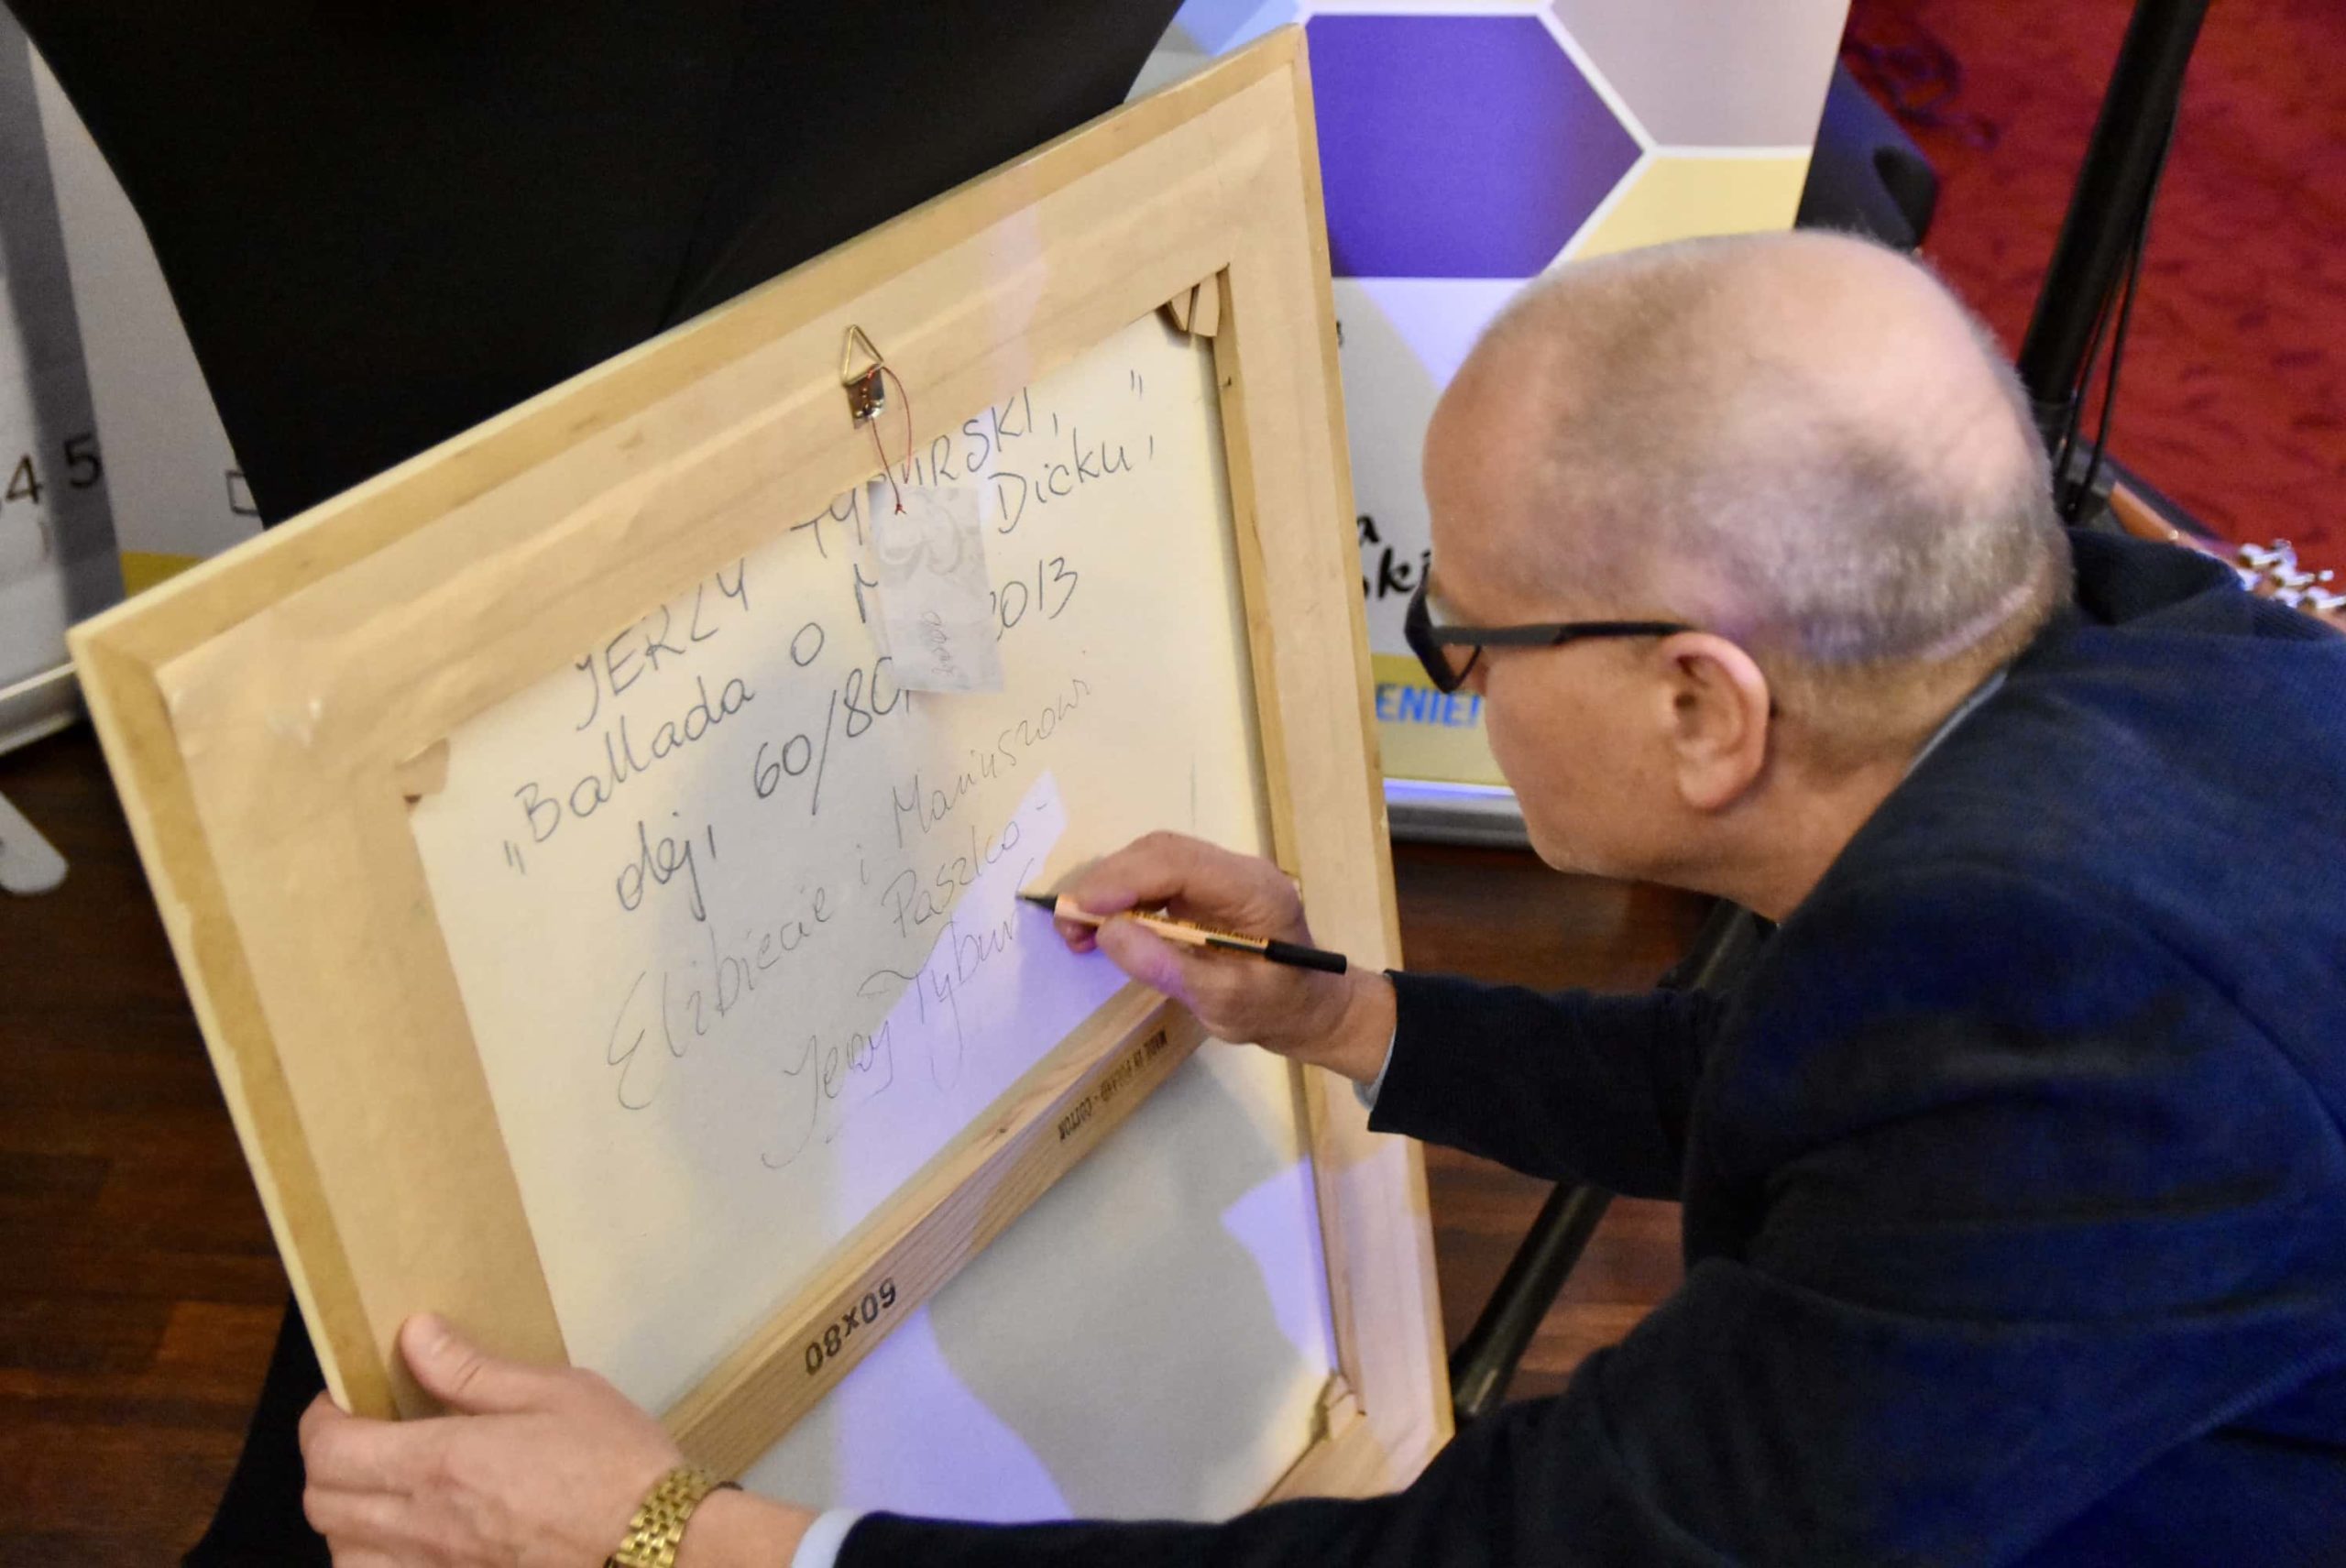 JERZY TYBURSKI,
„Ballada o Dicku",
olej, 60/80, 2013
Elżbiecie i Mariuszowi
Paszko -
Jerzy Tybur
MADE IN POLAND - COTTON
60x80
4 5
ENIE!